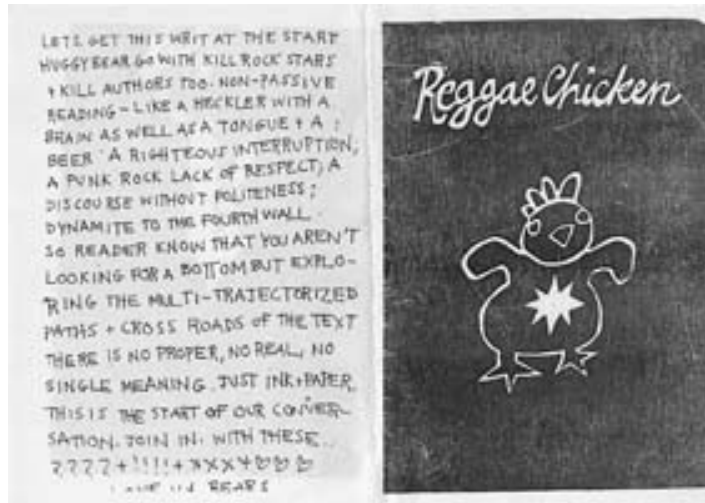 LETS GET THIS WRIT AT THE START
HUGGY BEAR GO WITH KILL ROCK STARS
+ KILL AUTHORS TOO. NON-PASSIVE
READING - LIKE A HECKLER WITH A
BRAIN AS WELL AS A TONGUE + A
BEER. A RIGHTEOUS INTERRUPTION;
A PUNK ROCK LACK OF RESPECT; A
DISCOURSE WITHOUT POLITENESS;
DYNAMITE TO THE FOURTH WALL.
SO READER KNOW THAT YOU AREN'T
LOOKING FOR A BOTTOM BUT EXPLO-
RING THE MULTI-TRAJECTORIZED
PATHS + CROSS ROADS OF THE TEXT
THERE IS NO PROPER, NO REAL, NO
SINGLE MEANING. JUST INK+PAPER.
THIS IS THE START OF OUR CONVER-
SATION. JOIN IN. WITH THESE..
????+!!!!+XXX+♡♡♡
BEARS
Reggae Chicken